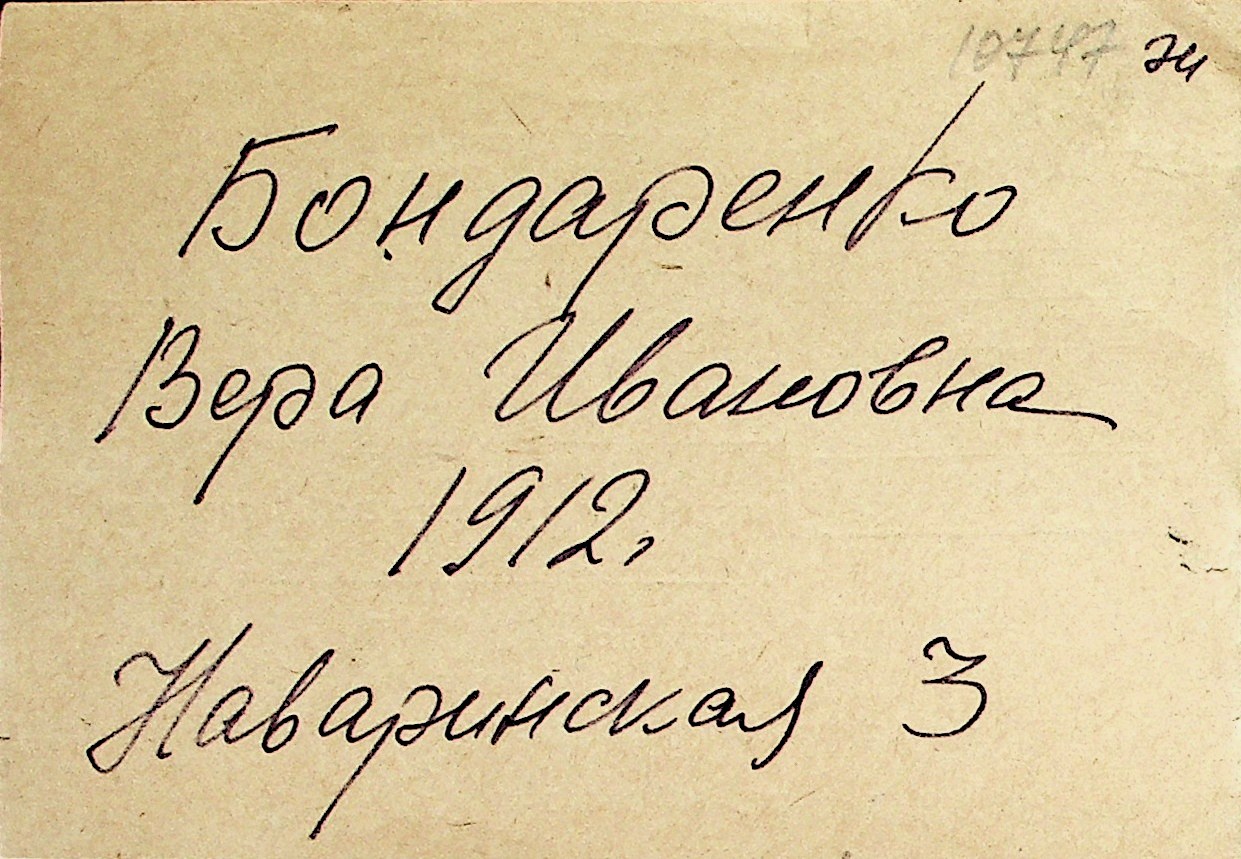 10747 эи
Бондаренко
Вера Ивановна
1912г
Наваринская 3